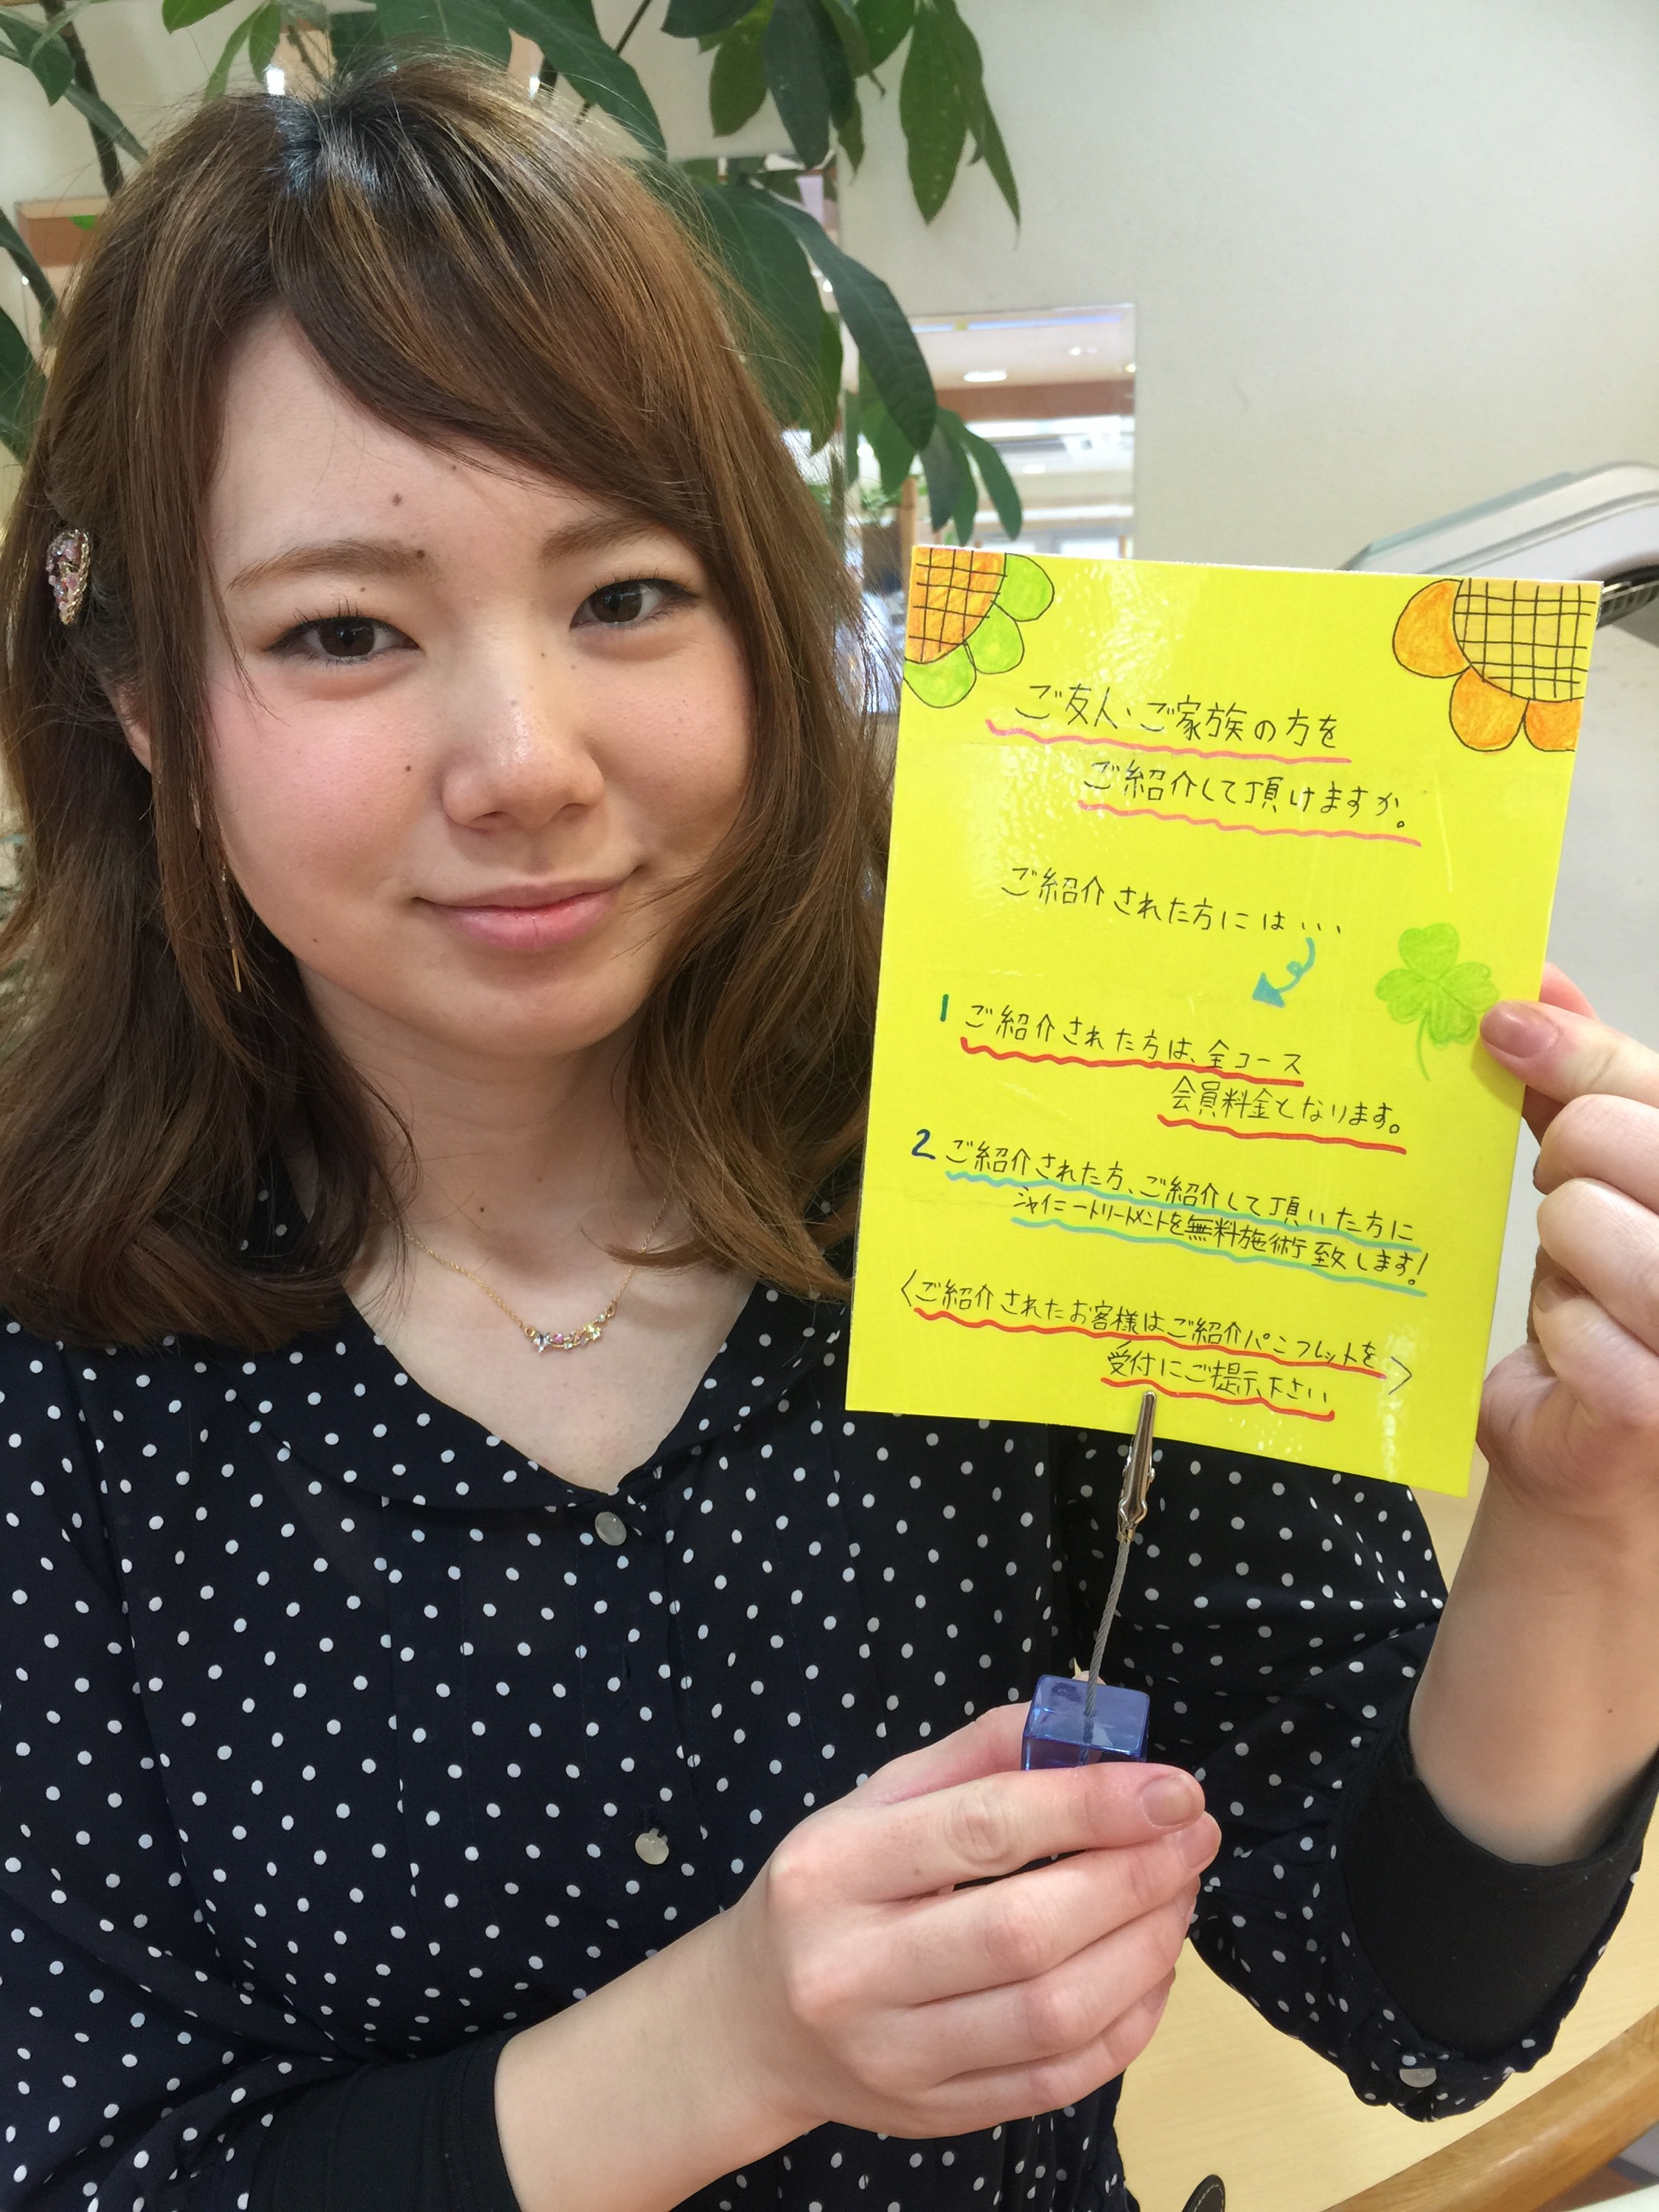 ご友人、ご家族の方を
ご紹介して頂けますか。
ご紹介された方には...
1 ご紹介された方は、全コース
会員料金となります。
2 ご紹介された方、ご紹介して頂いた方に
シャイニートリートメントを無料施術致します!
〈ご紹介されたお客様はご紹介パンフレットを
受付にご提示下さい〉